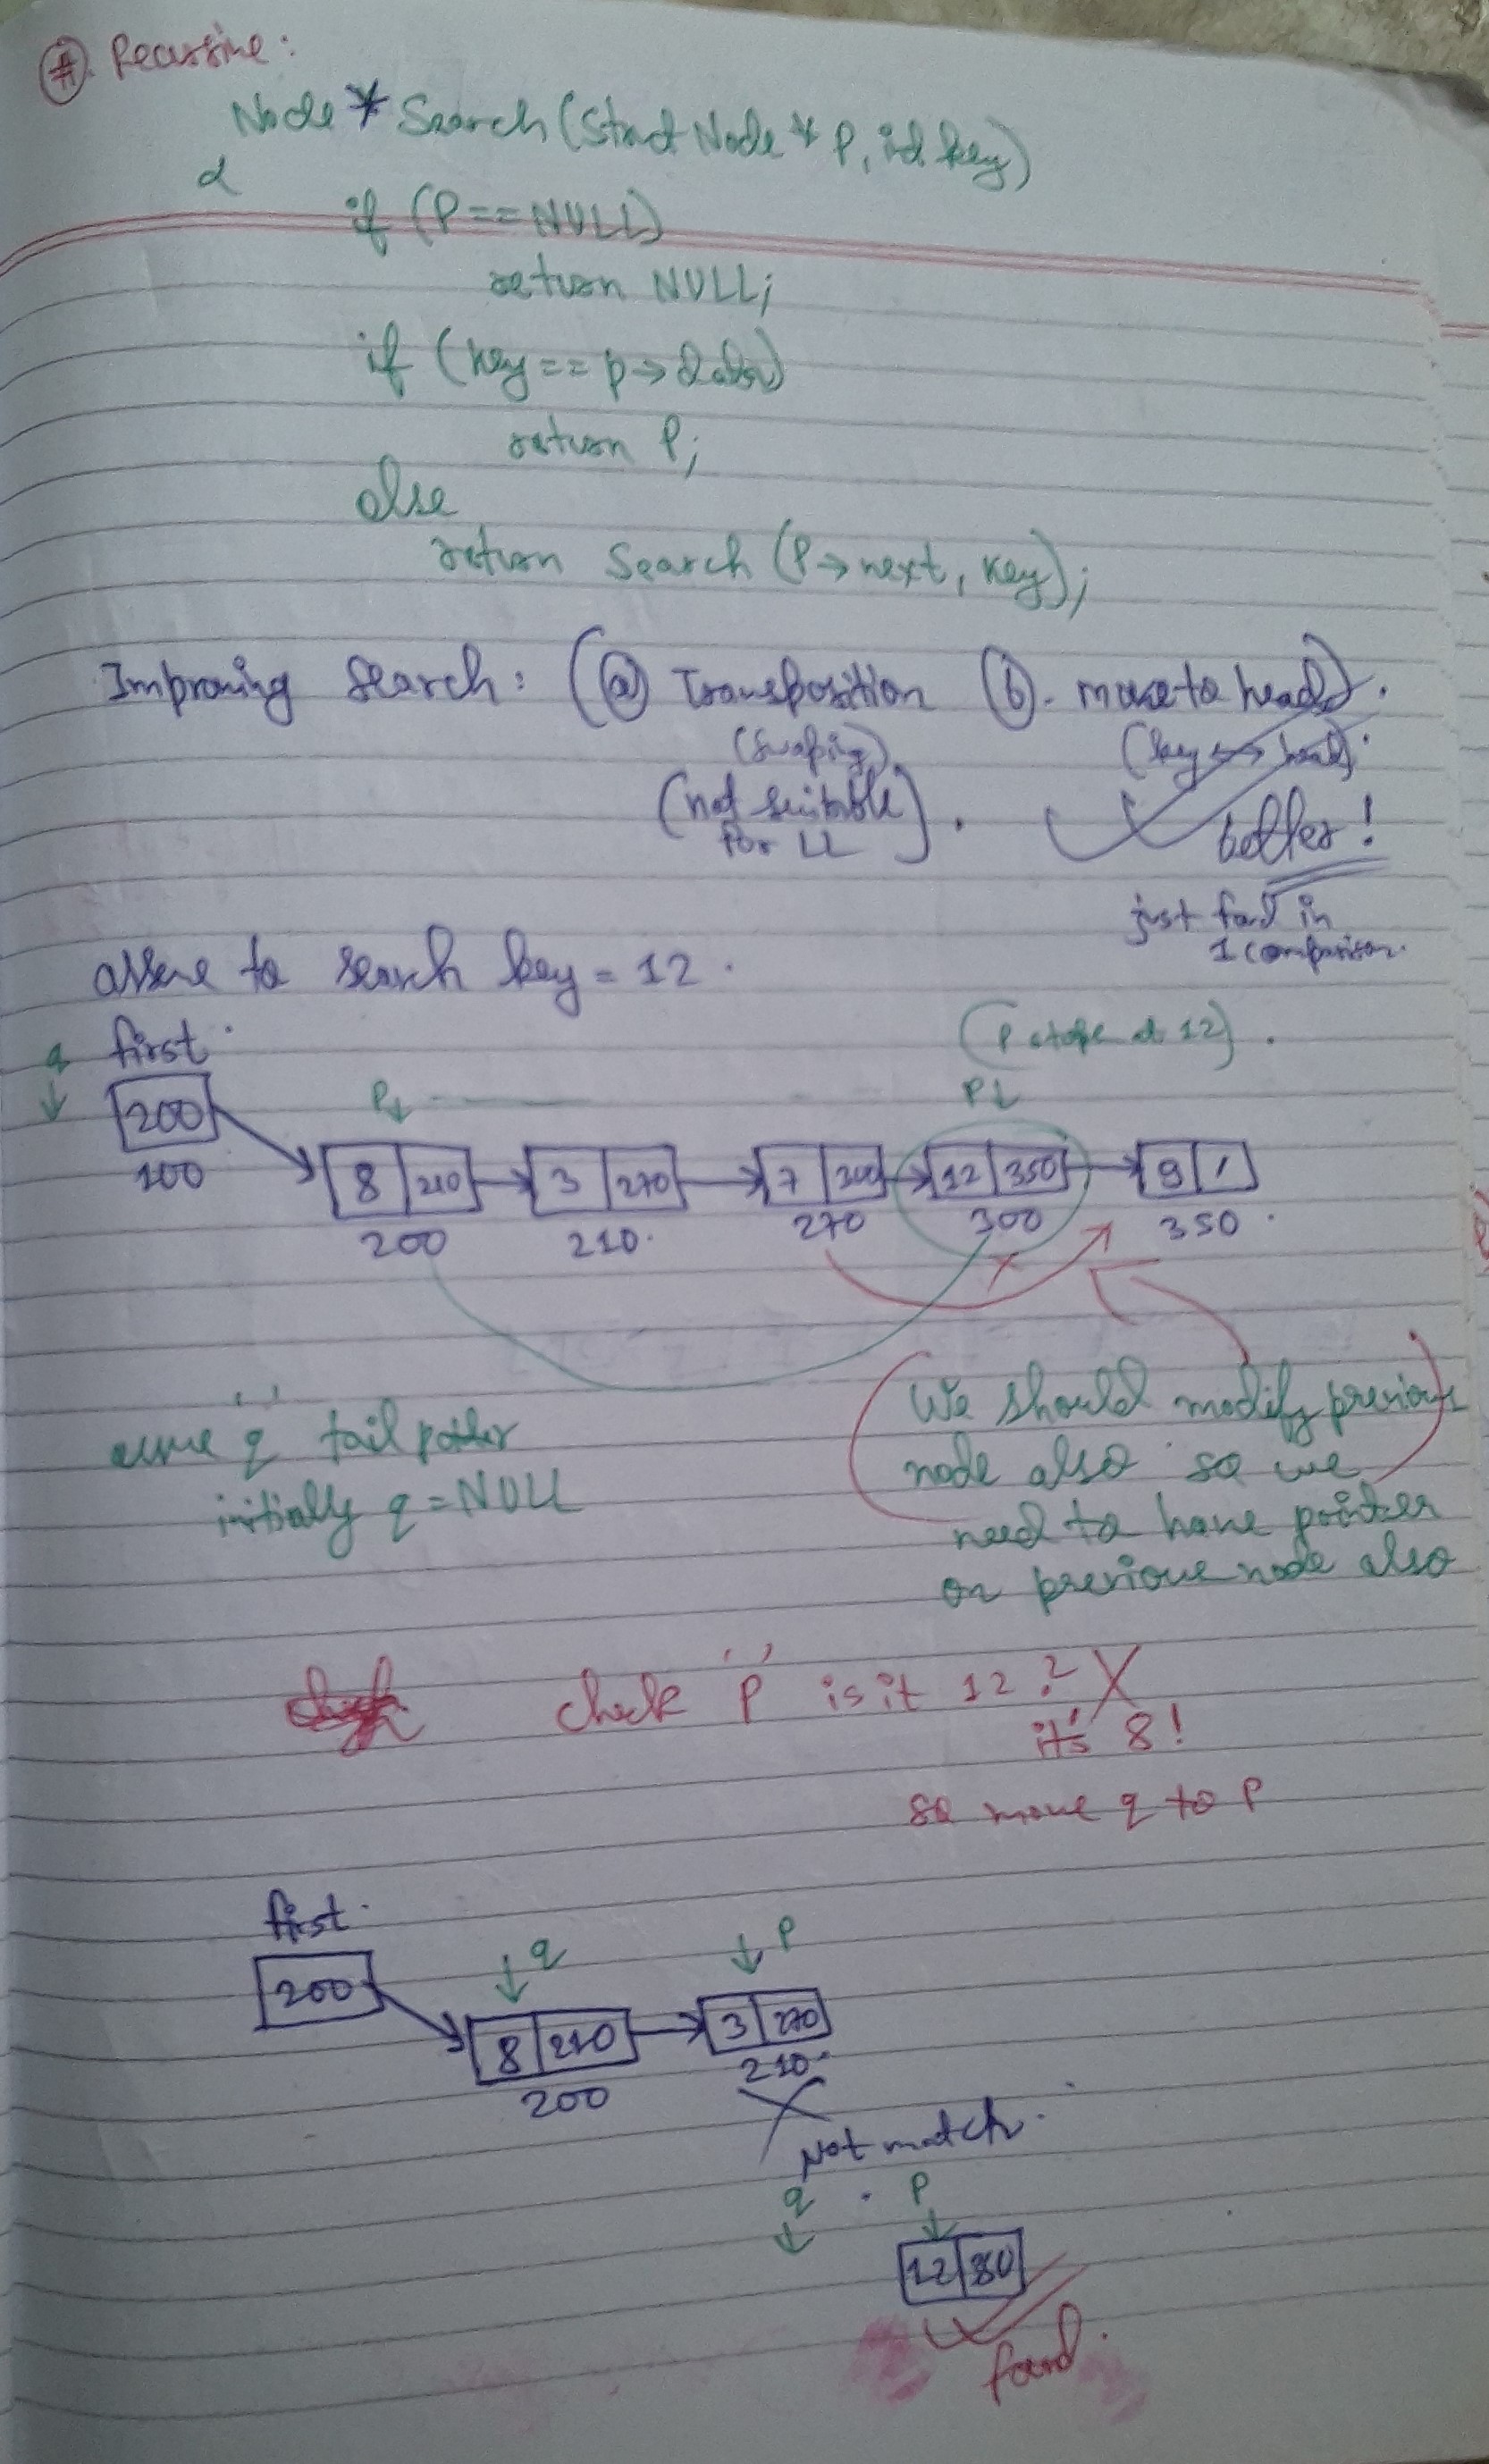 #. Recursive:
Node * Search (Struct Node * P, int key)
{
if (P == NULL)
return NULL;
if (key == p → data)
return P;
else
return Search (P → next, key);
Improving Search: (a) Transposition (b). move to head).
(swaping) (key ↔ head).
(not suitable for LL). better!
just found in
1 comparison.
assume to search key = 12.
q first. (P stops at 12).
200 P P
100
8 210 3 270 7 300 12 350 9 /
200 210. 270 300 350.
x
assume 'q' tail pointer
initially q = NULL
(We should modify previous
node also so we
need to have pointer
on previous node also
check 'p' is it 12? X
it's 8!
so move q to P
first.
q P
200
8 210 3 270
200 210.
Not match.
q . P
12 350
found.